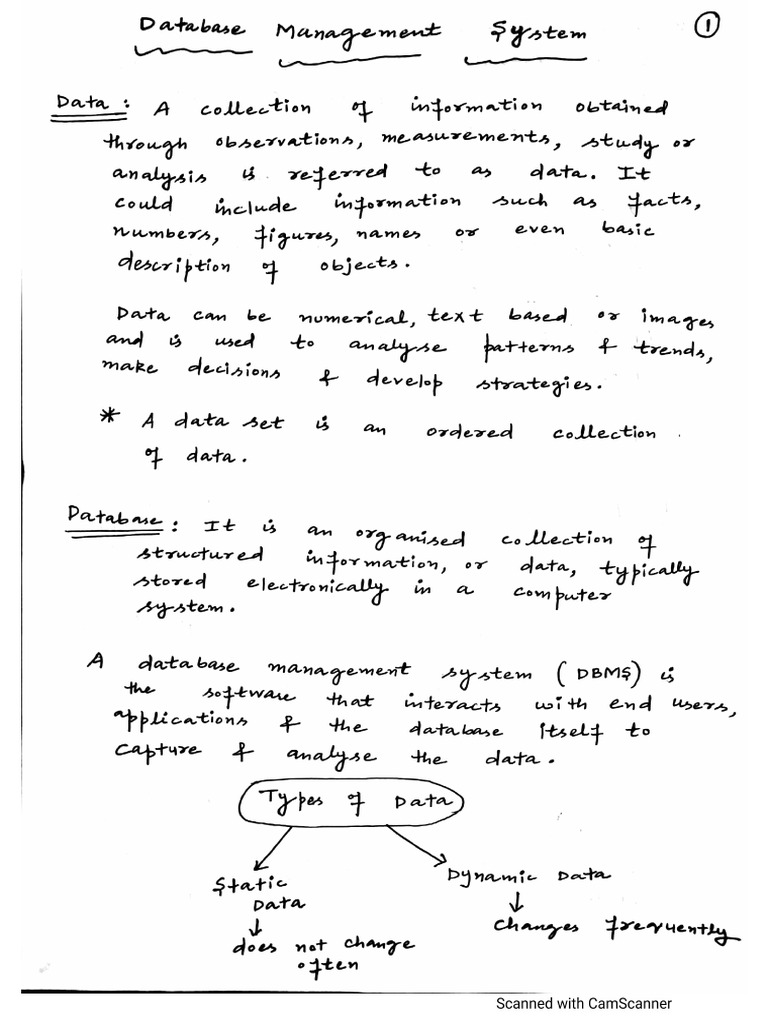 Database Management System 1
Data : A collection of information obtained
through observations, measurements, study or
analysis is referred to as data. It
could include information such as facts,
numbers, figures, names or even basic
description of objects.
Data can be numerical, text based or images
and is used to analyse patterns & trends,
make decisions & develop strategies.
* A data set is an ordered collection
of data.
Database : It is an organised collection of
structured information, or data, typically
stored electronically in a computer
system.
A database management system (DBMS) is
the software that interacts with end users,
applications & the database itself to
capture & analyse the data.
Types of Data
Static
Data
Dynamic Data
↓
changes frequently
↓
does not change
often
Scanned with CamScanner